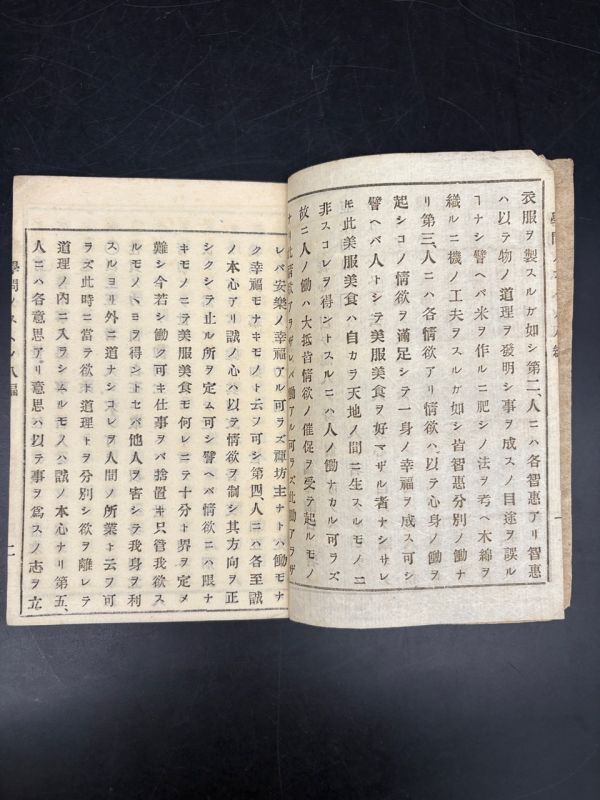 衣服ヲ製スルガ如シ第二、人ニハ各智惠アリ智惠
ハ以テ物ノ道理ヲ發明シ事ヲ成スノ目途ヲ誤ル
ヿナシ譬ヘバ米ヲ作ルニ肥シノ法ヲ考ヘ木綿ヲ
織ルニ機ノ工夫ヲスルガ如シ皆智惠分別ノ働ナ
リ第三、人ニハ各情欲アリ情欲ハ以テ心身ノ働ヲ
起シコノ情欲ヲ滿足シテ一身ノ幸福ヲ成ス可シ
譬ヘバ人トシテ美服美食ヲ好マザル者ナシサレ
𪜈此美服美食ハ自カラ天地ノ間ニ生スルモノニ
非スコレヲ得ントスルニハ人ノ働ナカル可ラズ
故ニ人ノ働ハ大抵皆情欲ノ催促ヲ受テ起ルモノ
ナリ此情欲アラザレバ働アル可ラズ此働アラザ
レバ安樂ノ幸福アル可ラズ禪坊主ナトハ働モナ
ク幸福モナキモノト云フ可シ第四、人ニハ各至誠
ノ本心アリ誠ノ心ハ以テ情欲ヲ制シ其方向ヲ正
シクシテ止ル所ヲ定ム可シ譬ヘバ情欲ニハ限ナ
キモノニテ美服美食モ何レニテ十分ト界ヲ定メ
難シ今若シ働ク可キ仕事ヲバ捨置キ只管我欲ス
ルモノノミヲ得ントセバ他人ヲ害シテ我身ヲ利
スルヨリ外ニ道ナシコレヲ人間ノ所業ト云フ可
ラズ此時ニ當テ欲ト道理トヲ分別シ欲ヲ離レテ
道理ノ內ニ入ラシムルモノハ誠ノ本心ナリ第五、
人ニハ各意思アリ意思ハ以テ事ヲ爲スノ志ヲ立
學問ノスヽメ八編
二